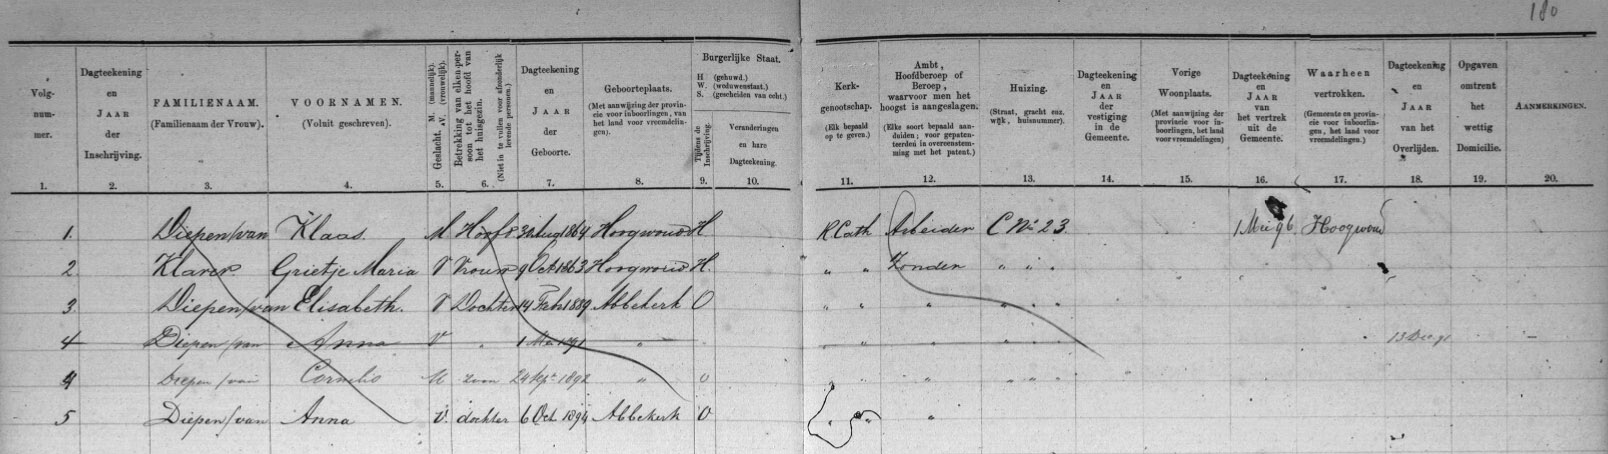 180
Volg-nummer.
Dagteekening en JAAR der Inschrijving.
FAMILIENAAM. (Familienaam der Vrouw).
VOORNAMEN. (Voluit geschreven).
Geslacht. M. (mannelijk). V. (vrouwelijk).
Betrekking van elken persoon tot het hoofd van het huisgezin. (Niet in te vullen voor afzonderlijk levende personen.)
Dagteekening en JAAR der Geboorte.
Geboorteplaats. (Met aanwijzing der provincie voor inboorlingen, van het land voor vreemdelingen).
Burgerlijke Staat.
H (gehuwd.)
W. (weduwenstaat.)
S. (gescheiden van echt.)
Tijdens de Inschrijving.
Veranderingen en hare Dagteekening.
Kerk-genootschap. (Elk bepaald op te geven.)
Ambt, Hoofdberoep of Beroep, waarvoor men het hoogst is aangeslagen. (Elke soort bepaald aanduiden; voor gepatenteerden in overeenstemming met het patent.)
Huizing. (Straat, gracht enz. wijk, huisnummer).
Dagteekening en JAAR der vestiging in de Gemeente.
Vorige Woonplaats. (Met aanwijzing der provincie voor inboorlingen, het land voor vreemdelingen)
Dagteekening en JAAR van het vertrek uit de Gemeente.
Waarheen vertrokken. (Gemeente en provincie voor inboorlingen, het land voor vreemdelingen.)
Dagteekening en JAAR van het Overlijden.
Opgaven omtrent het wettig Domicilie.
AANMERKINGEN.
1. 2. 3. 4. 5. 6. 7. 8. 9. 10. 11. 12. 13. 14. 15. 16. 17. 18. 19. 20.
1. Diepen/van Klaas. M Hoofd Aug 1864 Hoogwoud H R Cath Arbeider C No 23. 1 Mei 96 Hoogwoud
2. Klaver Grietje Maria V Vrouw 9 Oct 1863 Hoogwoud H. " " Zonder " " "
3. Diepen/van Elisabeth. V Dochter 14 Feb 1889 Abbekerk O " " " " " "
4 Diepen/van Anna V " 1 Mei 1891 " " " " " " " 13 Dec 91
4 Diepen/van Cornelis M zoon 24 Sept 1892 " O " " " " "
5 Diepen/van Anna V. dochter 6 Oct. 1894 Abbekerk O " " "